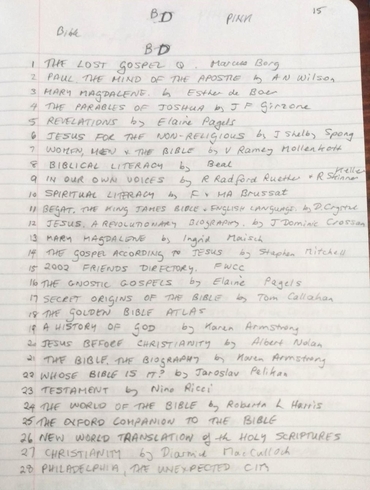 BD PINK 15
Bible
BD
1 THE LOST GOSPEL Q. Marcus Borg
2 PAUL THE MIND OF THE APOSTLE by A N Wilson
3 MARY MAGDALENE. by Esther de Boer
4 THE PARABLES OF JOSHUA by J F Girzone
5 REVELATIONS by Elaine Pagels
6 JESUS FOR THE NON-RELIGIOUS by J Shelby Spong
7 WOMEN, MEN & THE BIBLE by V Ramey Mollenkott
8 BIBLICAL LITERACY by Beal
9 IN OUR OWN VOICES by R Radford Ruether & R Skinner Keller
10 SPIRITUAL LITERACY by F & MA Brussat
11 BEGAT, THE KING JAMES BIBLE & ENGLISH LANGUAGE, by D. Crystal
12 JESUS, A REVOLUTIONARY BIOGRAPHY. by J Dominic Crossan
13 MARY MAGDALENE by Ingrid Maisch
14 THE GOSPEL ACCORDING TO JESUS by Stephen Mitchell
15 2002 FRIENDS DIRECTORY, FWCC
16 THE GNOSTIC GOSPELS by Elaine Pagels
17 SECRET ORIGINS OF THE BIBLE by Tom Callahan
18 THE GOLDEN BIBLE ATLAS
19 A HISTORY OF GOD by Karen Armstrong
20 JESUS BEFORE CHRISTIANITY by Albert Nolan
21 THE BIBLE, THE BIOGRAPHY by Karen Armstrong
22 WHOSE BIBLE IS IT? by Jaroslav Pelikan
23 TESTAMENT by Nino Ricci
24 THE WORLD OF THE BIBLE by Roberta L Harris
25 THE OXFORD COMPANION TO THE BIBLE
26 NEW WORLD TRANSLATION of th HOLY SCRIPTURES
27 CHRISTIANITY by Diarmid MacCulloch
28 PHILADELPHIA, THE UNEXPECTED CITY